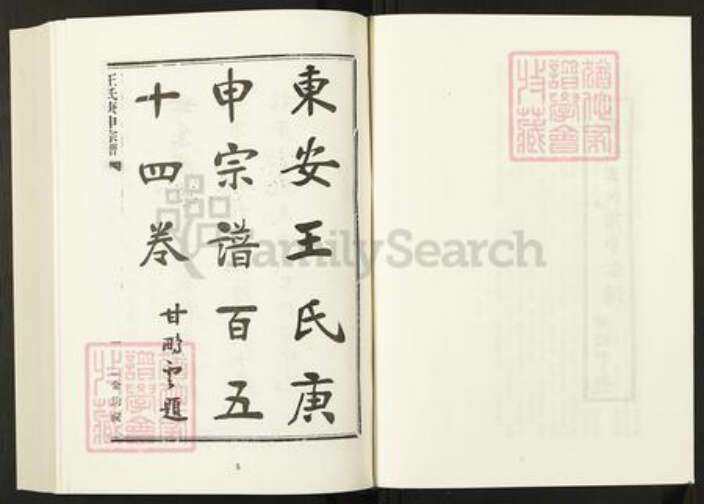 東安王氏庚
申宗譜百五
十四卷
甘鵬雲題
王氏庚申宗譜
5
FamilySearch